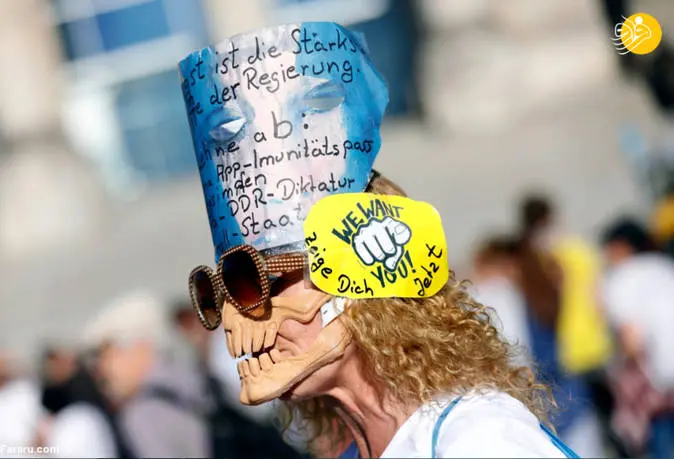 ist die Stärks
der Regierung.
ab:
App-Imunitätspass
DDR-Diktatur
Staat
WE WANT
YOU!
zeige Dich Jetzt
Fararu.com